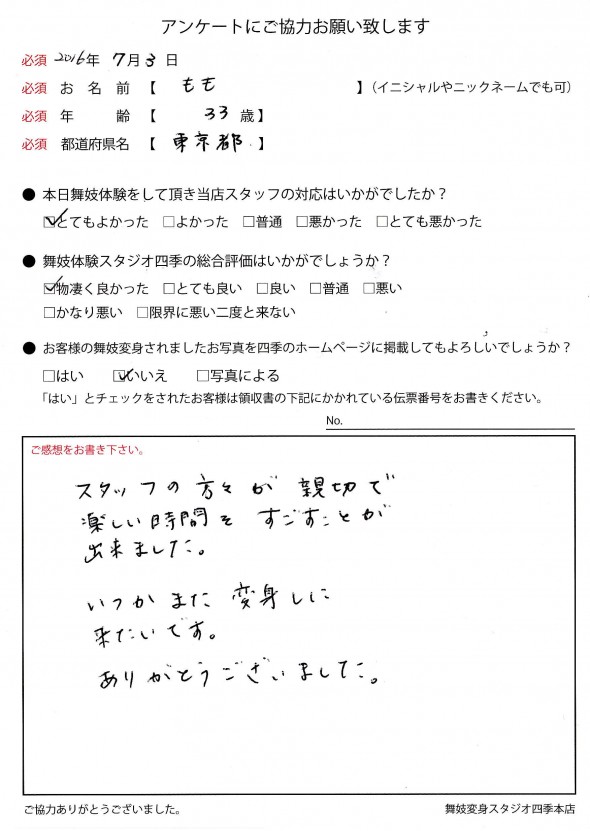 アンケートにご協力お願い致します
必須 2016年 7月 3日
必須 お名前 【 もも 】(イニシャルやニックネームでも可)
必須 年齢 【 33歳】
必須 都道府県名 【 東京都 】
● 本日舞妓体験をして頂き当店スタッフの対応はいかがでしたか?
☑とてもよかった □よかった □普通 □悪かった □とても悪かった
● 舞妓体験スタジオ四季の総合評価はいかがでしょうか?
☑物凄く良かった □とても良い □良い □普通 □悪い
□かなり悪い □限界に悪い二度と来ない
● お客様の舞妓変身されましたお写真を四季のホームページに掲載してもよろしいでしょうか?
□はい ☑いいえ □写真による
「はい」とチェックをされたお客様は領収書の下記にかかれている伝票番号をお書きください。
No.
ご感想をお書き下さい。
スタッフの方々が親切で
楽しい時間を すごすことが
出来ました。
いつかまた変身しに
来たいです。
ありがとうございました。
ご協力ありがとうございました。
舞妓変身スタジオ四季本店